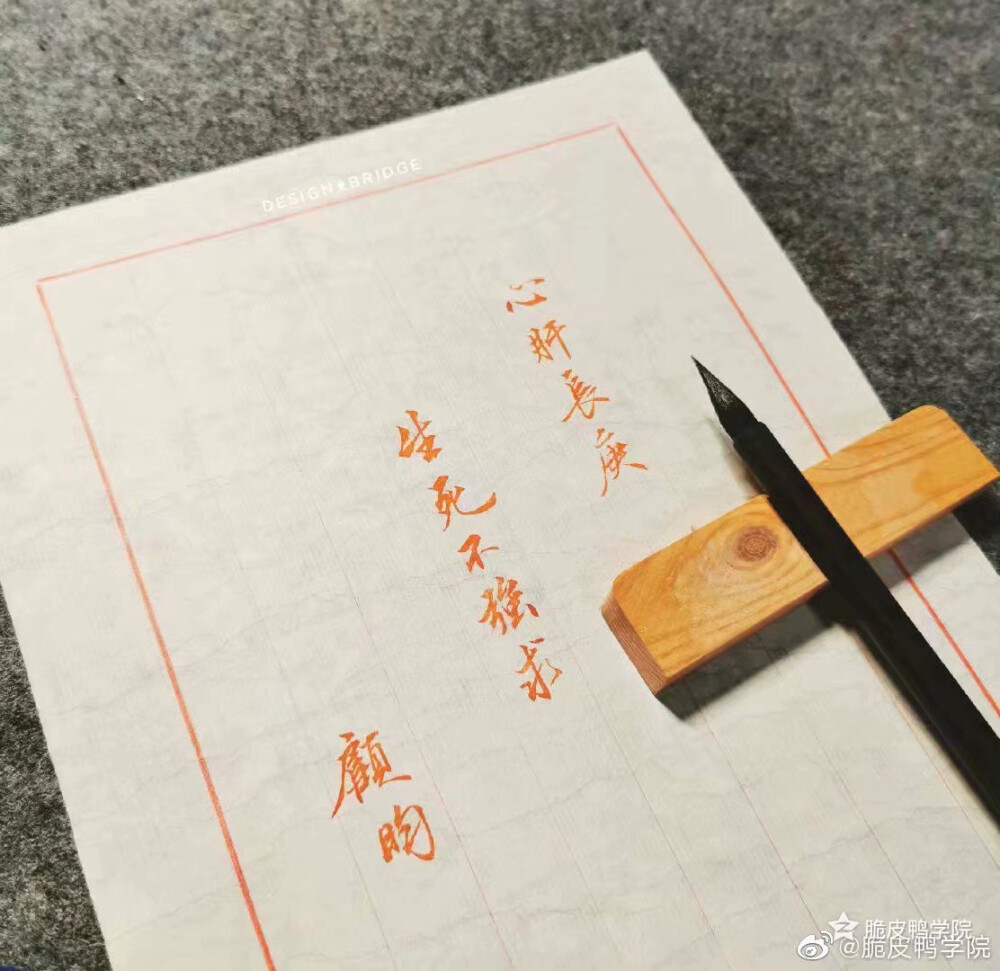 DESIGN BRIDGE
心肝長庚
生死不強求
顧昀
脆皮鸭学院
@脆皮鸭学院